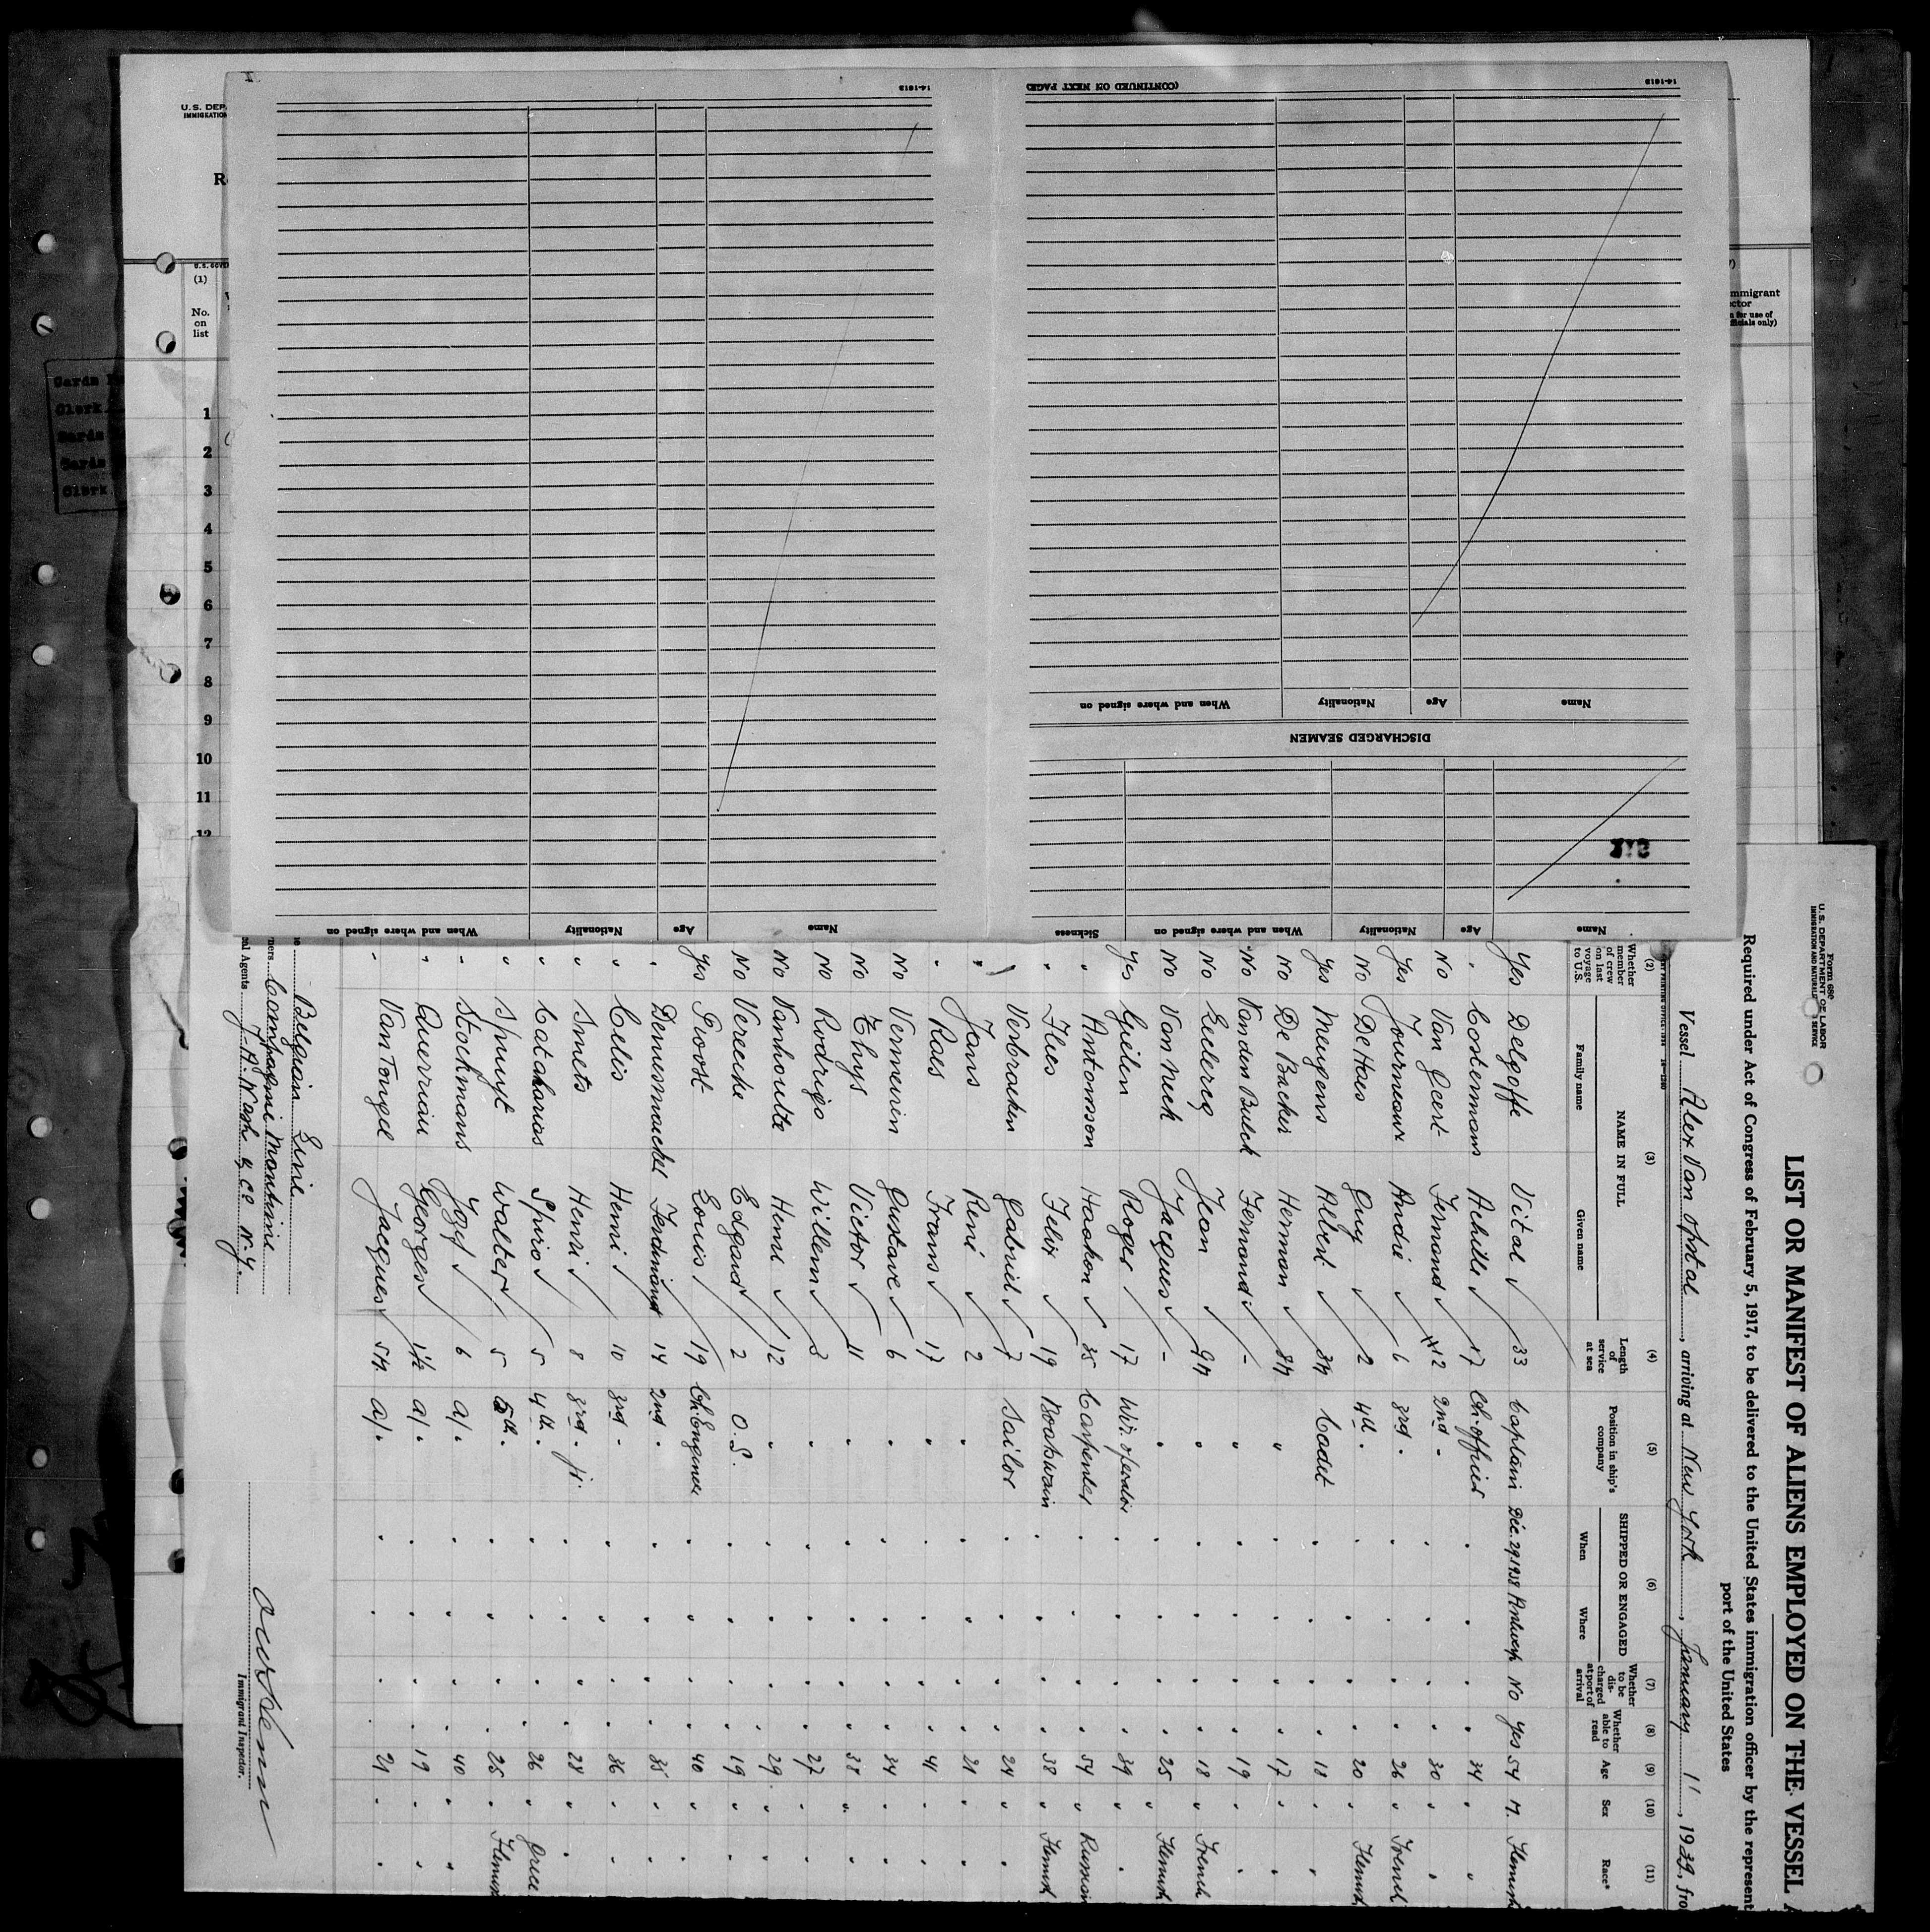 Form 680
U. S. DEPARTMENT OF LABOR
IMMIGRATION AND NATURALIZ SERVICE
LIST OR MANIFEST OF ALIENS EMPLOYED ON THE VESSEL
Required under Act of Congress of February 5, 1917, to be delivered to the United States immigration officer by the represent
port of the United States
Vessel Alex Van Opstal, arriving at New York, January 11, 1939, fro
(2) (3) (4) (5) (6) (7) (8) (9) (10) (11)
Whether member of crew on last voyage to U.S.
NAME IN FULL
Family name Given name
Length of service at sea
Position in ship's company
SHIPPED OR ENGAGED
When Where
Whether to be discharged at port of arrival
Whether able to read
Age Sex Race*
Yes Delgoffe Vital 33 Captain Dec. 29.1938 Antwerp No Yes 54 M. Flemish
" Costermans Achille 17 Ch. officer " " " " 34 " "
No Van Geert Fernand 12 2nd " " " " " 30 " "
Yes Journeaux André 6 3rd " " " " " 26 " French
No De Haes Guy 2 4th " " " " " 20 " Flemish
Yes Meugens Albert Cadet " " " " 18 " "
No De Backer Herman " " " " " 17 " "
No Vanden Bulck Fernand - " " " " " 19 " "
No Jean " " " " " 18 " French
No Van Neck Jacques - " " " " " 25 " Flemish
Yes Gielen Roger 17 Wir. operator " " " " 39 " "
" Antonsson Haakon 35 Carpenter " " " " 54 " Russian
" Flies Felix 19 Boatswain " " " " 38 " Flemish
" Verbraeken Gabriel 7 Sailor " " " " 24 " "
" Jans René 2 " " " " " 21 " "
" Raes Frans 17 " " " " " 41 " "
No Vermeiren Gustave 6 " " " " " 34 " "
No Thys Victor 11 " " " " " 38 " "
No Rodrigo Willem 2 " " " " " 27 " "
No Vanhoutte Henri 12 " " " " " 29 " "
No Vereecke Edgard 2 O.S. " " " " 19 " "
Yes Provost Louis 19 Ch. Engineer " " " " 40 " "
" Ferdinand 14 2nd " " " " " 35 " "
" Celis Henri 10 3rd " " " " " 36 " "
" Smets Henri 8 3rd " jr. " " " " 28 " "
" Cataharios Spiro 5 4th " " " " " 26 " Greek
" Spruyt Walter 5 5th " " " " " 25 " Flemish
" Stockmans Jozef 6 a/. " " " " 40 " "
" Querriau Georges 1½ a/. " " " " 19 " "
" Van Tongel Jacques a/. " " " " 21 " "
Belgian Line
ners Compagnie Maritime
al Agents J. H. Nash & Co N.Y.
Immigrant Inspector.
DISCHARGED SEAMEN
Name Age Nationality When and where signed on Sickness
Name Age Nationality When and where signed on
(CONTINUED ON NEXT PAGE)
14-1613
Name Age Nationality When and where signed on
14-1613
U. S. DEP
IMMIGRATION
R
U.S. GOVE
(1)
No. on list
1
2
3
4
5
6
7
8
9
10
11
12
mmigrant
ctor
n for use of
fficials only)
Cards
Clerk
Cards
Cards
Clerk